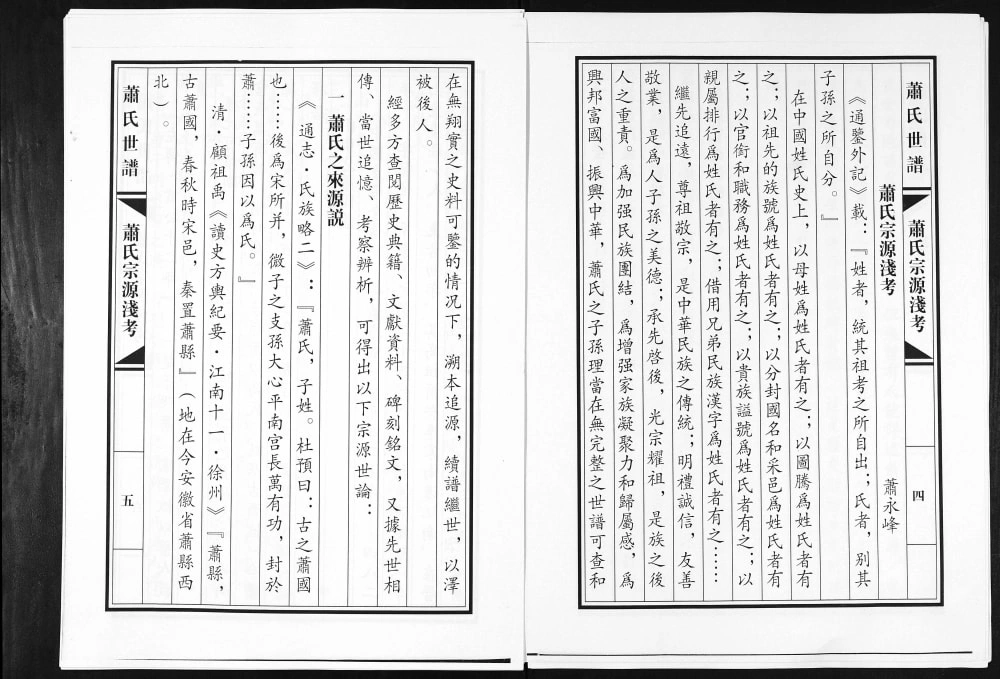 蕭氏世譜
蕭氏宗源淺考
四
蕭氏宗源淺考
蕭永峰
《通鑒外記》載：『姓者，統其祖考之所自出；氏者，别其
子孫之所自分。』
在中國姓氏史上，以母姓爲姓氏者有之；以圖騰爲姓氏者有
之；以祖先的族號爲姓氏者有之；以分封國名和采邑爲姓氏者有
之；以官銜和職務爲姓氏者有之；以貴族謚號爲姓氏者有之；以
親屬排行爲姓氏者有之；借用兄弟民族漢字爲姓氏者有之……
繼先追遠，尊祖敬宗，是中華民族之傳統；明禮誠信，友善
敬業，是爲人子孫之美德；承先啓後，光宗耀祖，是族之後
人之重責。爲加强民族團結，爲增强家族凝聚力和歸屬感，爲
興邦富國、振興中華，蕭氏之子孫理當在無完整之世譜可查和
在無翔實之史料可鑒的情况下，溯本追源，續譜繼世，以澤
被後人。
經多方查閱歷史典籍、文獻資料、碑刻銘文，又據先世相
傳、當世追憶、考察辨析，可得出以下宗源世論：
一 蕭氏之來源説
《通志·氏族略二》：『蕭氏，子姓。杜預曰：古之蕭國
也……後爲宋所并，微子之支孫大心平南宫長萬有功，封於
蕭……子孫因以爲氏。』
清·顧祖禹《讀史方輿紀要·江南十一·徐州》『蕭縣，
古蕭國，春秋時宋邑，秦置蕭縣』（地在今安徽省蕭縣西
北）。
蕭氏世譜
蕭氏宗源淺考
五